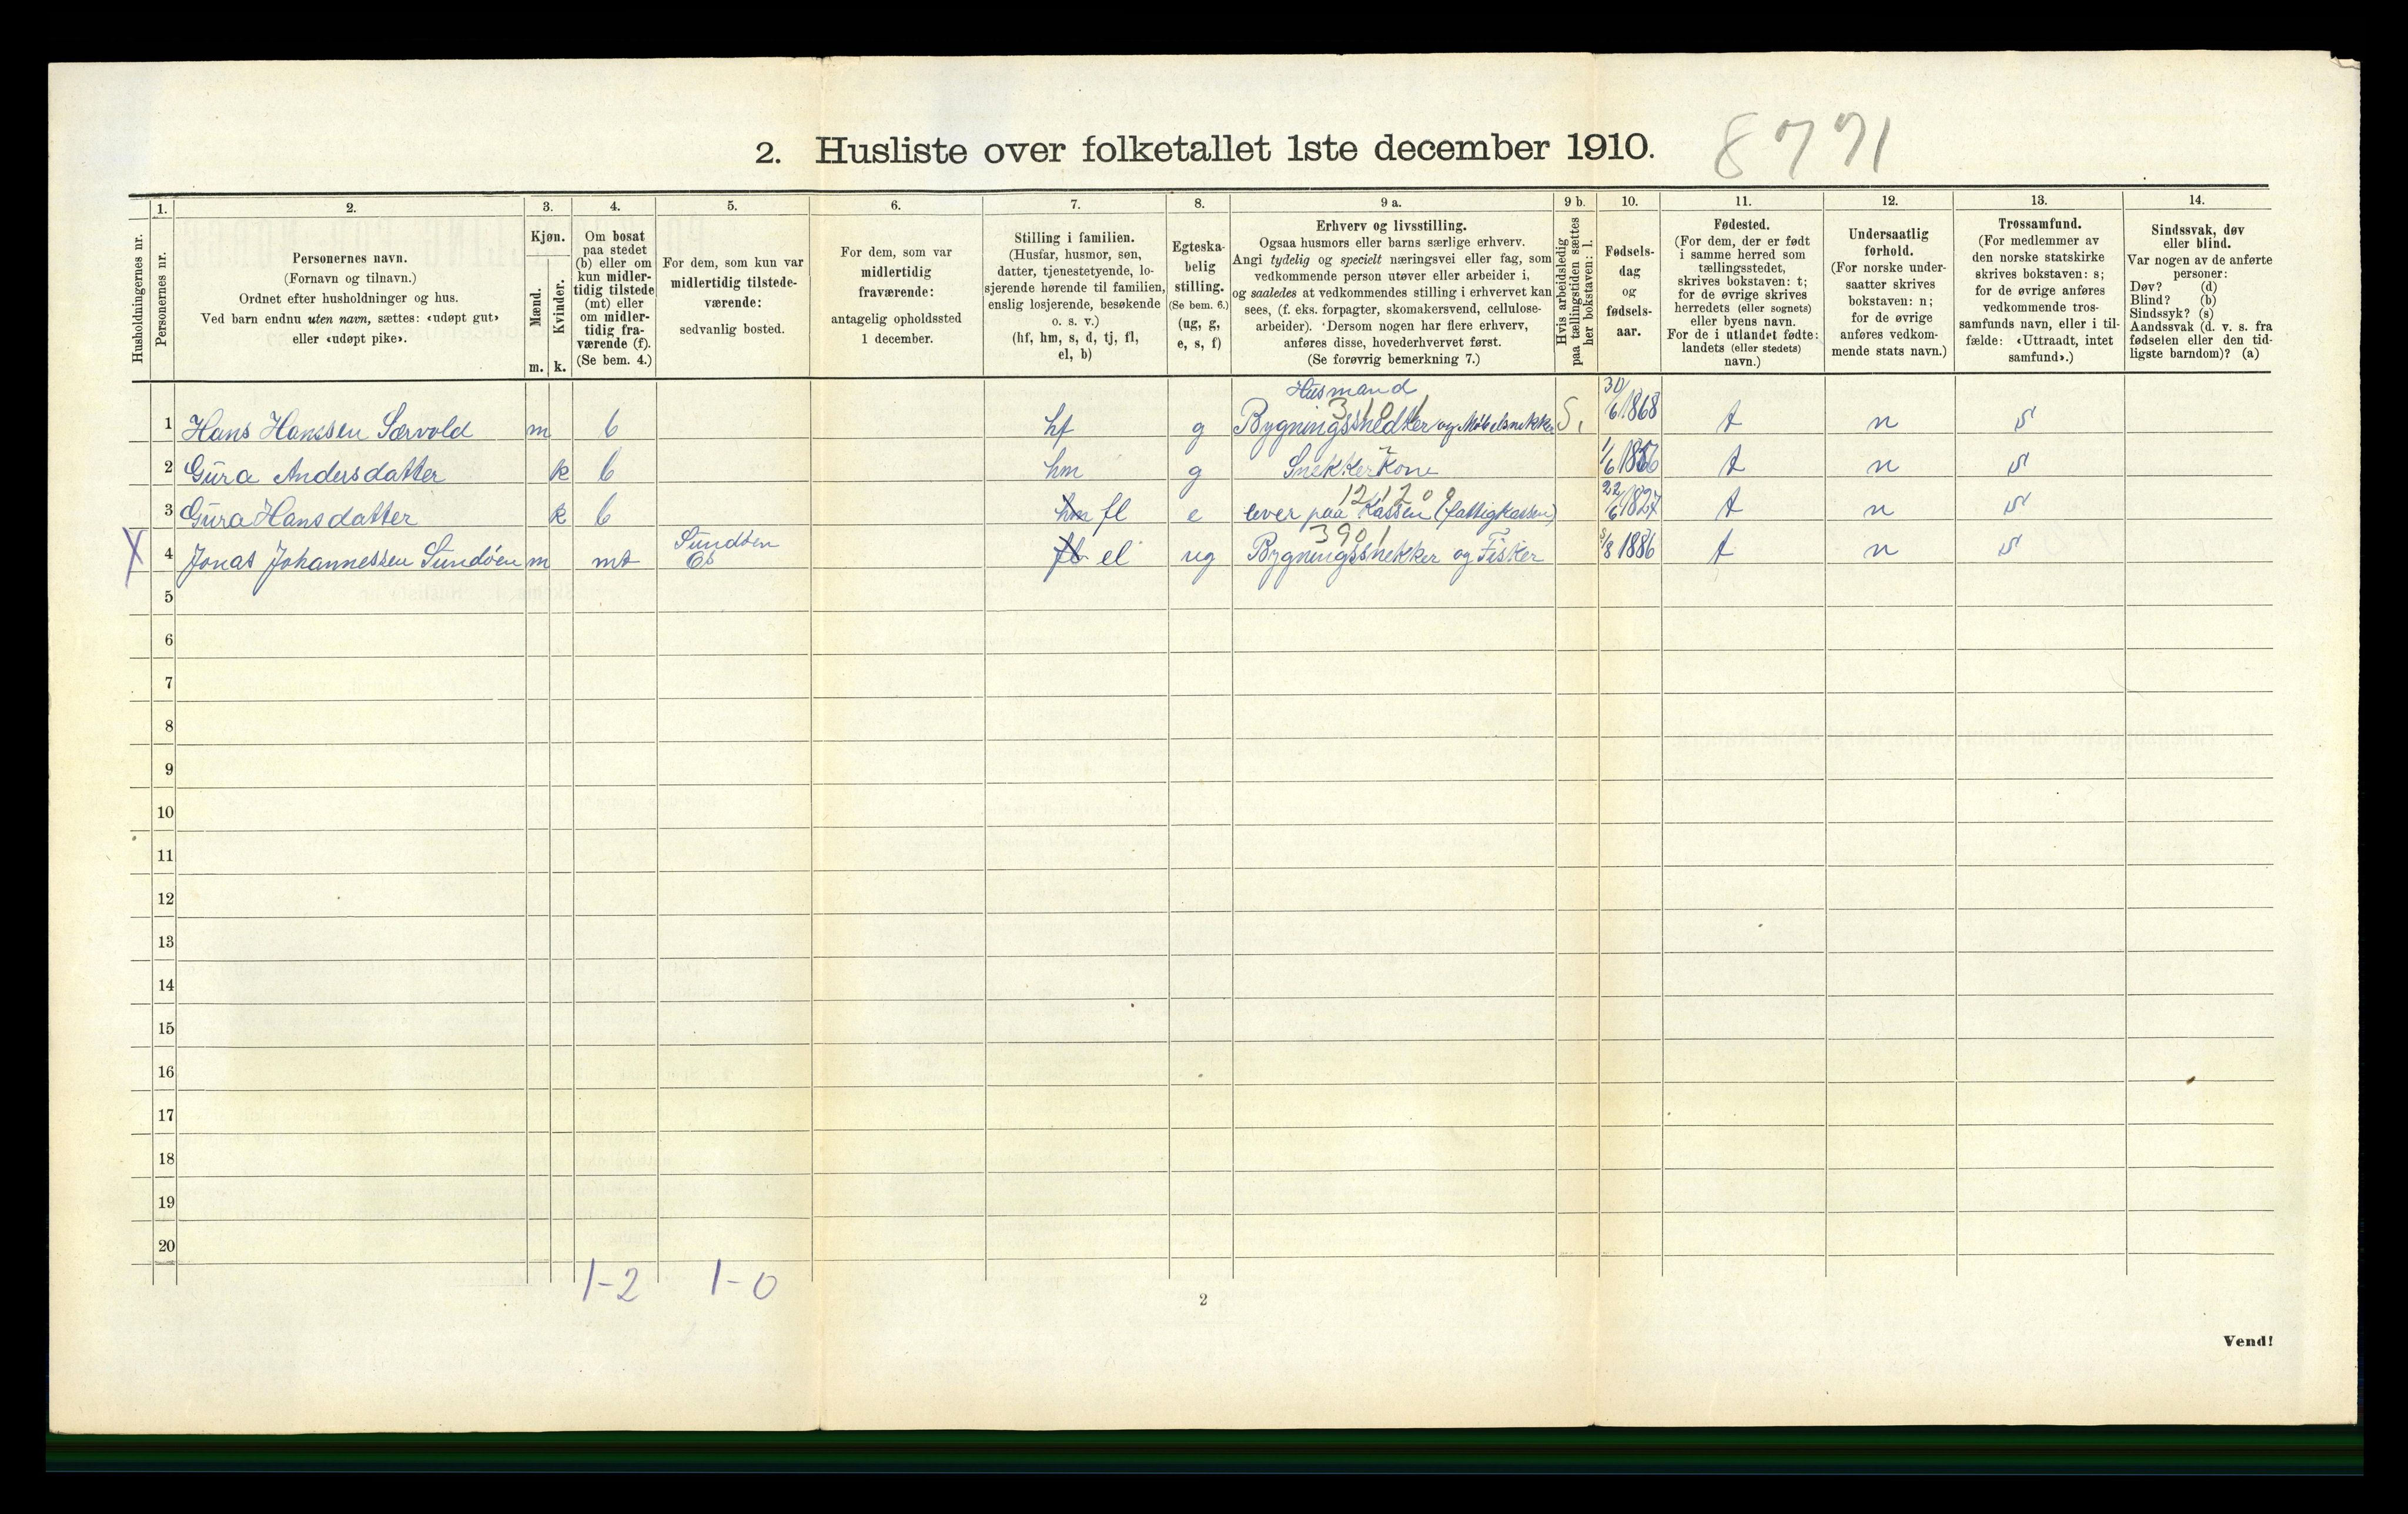 2. Husliste over folketallet 1ste december 1910.
8771
Husholdningernes nr.
1.
Personernes nr.
2.
Personernes navn.
(Fornavn og tilnavn.)
Ordnet efter husholdninger og hus.
Ved barn endnu uten navn, sættes: «udøpt gut»
eller «udøpt pike».
3.
Kjøn.
Mænd.
Kvinder.
m. k.
4.
Om bosat
paa stedet
(b) eller om
kun midler-
tidig tilstede
(mt) eller
om midler-
tidig fra-
værende (f).
(Se bem. 4.)
5.
For dem, som kun var
midlertidig tilstede-
værende:
sedvanlig bosted.
6.
For dem, som var
midlertidig
fraværende:
antagelig opholdssted
1 december.
7.
Stilling i familien.
(Husfar, husmor, søn,
datter, tjenestetyende, lo-
sjerende hørende til familien,
enslig losjerende, besøkende
o. s. v.)
(hf, hm, s, d, tj, fl,
el, b)
8.
Egteska-
belig
stilling.
(Se bem. 6.)
(ug, g,
e, s, f)
9 a.
Erhverv og livsstilling.
Ogsaa husmors eller barns særlige erhverv.
Angi tydelig og specielt næringsvei eller fag, som
vedkommende person utøver eller arbeider i,
og saaledes at vedkommendes stilling i erhvervet kan
sees, (f. eks. forpagter, skomakersvend, cellulose-
arbeider). Dersom nogen har flere erhverv,
anføres disse, hovederhvervet først.
(Se forøvrig bemerkning 7.)
9 b.
Hvis arbeidsledig
paa tællingstiden sættes
her bokstaven: l.
10.
Fødsels-
dag
og
fødsels-
aar.
11.
Fødested.
(For dem, der er født
i samme herred som
tællingsstedet,
skrives bokstaven: t;
for de øvrige skrives
herredets (eller sognets)
eller byens navn.
For de i utlandet fødte:
landets (eller stedets)
navn.)
12.
Undersaatlig
forhold.
(For norske under-
saatter skrives
bokstaven: n;
for de øvrige
anføres vedkom-
mende stats navn.)
13.
Trossamfund.
(For medlemmer av
den norske statskirke
skrives bokstaven: s;
for de øvrige anføres
vedkommende tros-
samfunds navn, eller i til-
fælde: «Uttraadt, intet
samfund».)
14.
Sindssvak, døv
eller blind.
Var nogen av de anførte
personer:
Døv? (d)
Blind? (b)
Sindssyk? (s)
Aandssvak (d. v. s. fra
fødselen eller den tid-
ligste barndom)? (a)
Husmand
3101
1 Hans Hanssen Sørvold m b hf g Bygningssnedker og Møbelsnekker S. 30/6 1868 t n s
2 Gura Andersdatter k b hm g Snekker Kone 1/6 1886 t n s
12120
3 Gura Hansdatter k b hm fl e lever paa Kassen (fattigkassen) 22/6 1827 t n s
Sundöen
3901
X 4 Jonas Johannessen Sundöen m mt Os fl el ug Bygningssnekker og Fisker 5/8 1886 t n s
5
6
7
8
9
10
11
12
13
14
15
16
17
18
19
20
1-2 1-0
2
Vend!